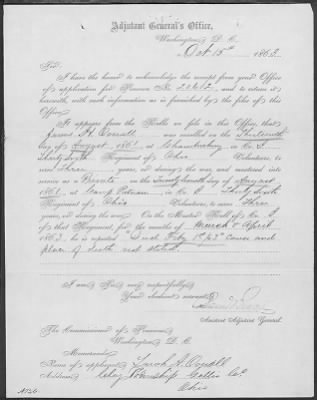 Adjutant General's Office,
Washington, D. C.
Oct 15th 1863
Sir:
I have the honor to acknowledge the receipt from your Office
of application for Pension No. and to return it
herewith, with such information as is furnished by the files of this
Office.
It appears from the Rolls on file in this Office, that
James H. was enrolled on the Thirteenth
day of August, 1861, at in Co. I,
Thirty Sixth Regiment of Ohio Volunteers, to
serve Three years, or during the war, and mustered into
service as a Private on the Twenty Seventh day of August,
1861, at Camp Putnam, in Co. I, Thirty Sixth
Regiment of Ohio Volunteers, to serve Three
years, or during the war. On the Muster Roll of Co. I,
of that Regiment, for the months of March & April
1863, he is reported "Died Feby 63" Cause and
place of death not stated.
I am, Sir, very respectfully,
Your obedient servant,
Assistant Adjutant General.
The Commissioner of Pensions,
Washington, D. C.
Memoranda:
Name of applicant,
Address, Township Gallia Co.
Ohio